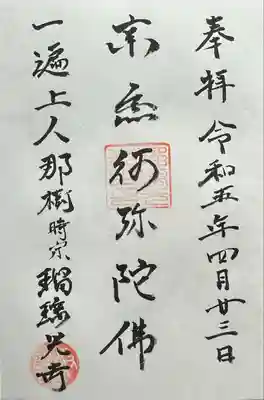 奉拝 令和五年四月廿三日
南無阿弥陀佛
一遍上人 時宗 瑠璃光寺